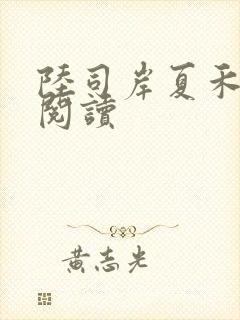 陸司岸夏禾
閱讀
黃志光